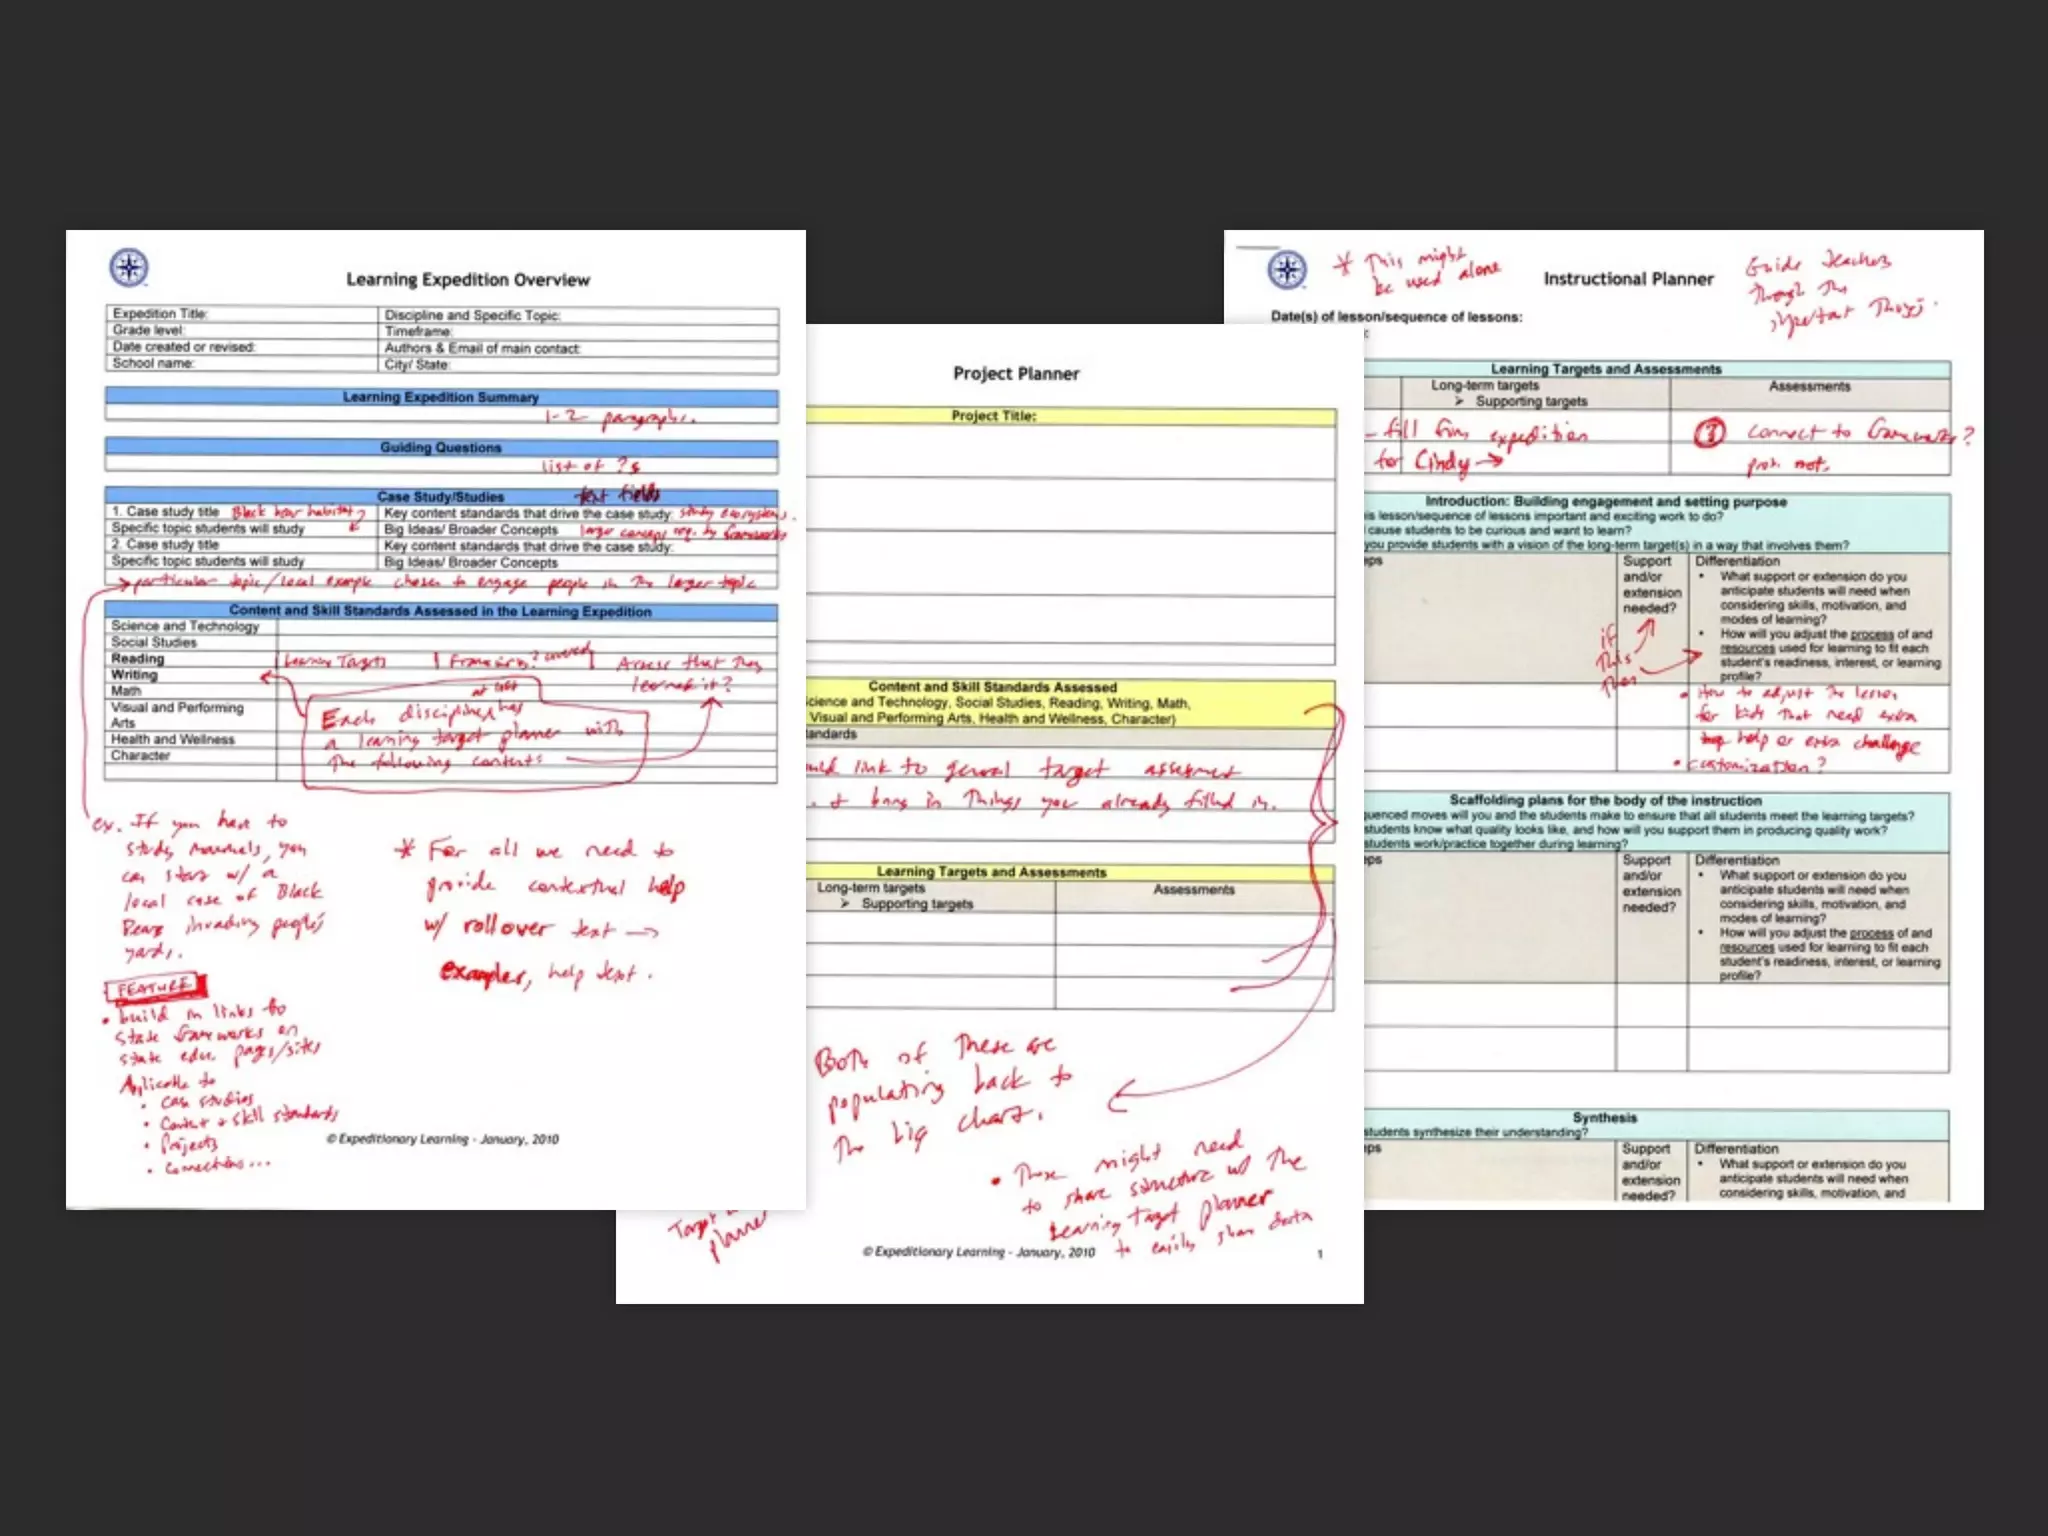 Learning Expedition Overview
Expedition Title:
Discipline and Specific Topic:
Grade level:
Timeframe:
Date created or revised:
Authors & Email of main contact:
School name:
City/ State:
Learning Expedition Summary
1-2 paragraphs.
Guiding Questions
list of ?s
Case Study/Studies
text fields
1. Case study title Black bear habitat
Key content standards that drive the case study: study ecosystems.
Specific topic students will study
Big Ideas/ Broader Concepts larger concept req. by frameworks
2. Case study title
Key content standards that drive the case study:
Specific topic students will study
Big Ideas/ Broader Concepts
particular topic/local example chosen to engage people in the larger topic
Content and Skill Standards Assessed in the Learning Expedition
Science and Technology
Social Studies
Reading
Learning Targets
covered
Assess that they
learned it?
Writing
Math
Visual and Performing
Arts
Health and Wellness
Character
at last
Each discipline has
a learning target planner with
the following contents
ex. If you have to
study mammals, you
can start w/ a
local case of Black
Bears invading people's
yards.
* For all we need to
provide contextual help
w/ rollover text →
examples, help text.
FEATURE
• build in links to
state frameworks on
state edu. pages/sites
Applicable to
• case studies
• Content + skill standards
• Projects
• Connections...
© Expeditionary Learning - January, 2010
Project Planner
Project Title:
Content and Skill Standards Assessed
Science and Technology, Social Studies, Reading, Writing, Math,
Visual and Performing Arts, Health and Wellness, Character)
link to general target assessment
+ bring in things you already filled in.
Learning Targets and Assessments
Long-term targets
Assessments
➢ Supporting targets
Both of these are
populating back to
the big chart.
• These might need
to share structure w/ the
Learning Target planner
to easily share data
Target
planner
© Expeditionary Learning - January, 2010
1
* This might
be used alone
Instructional Planner
Guide teachers
through the
important things.
Date(s) of lesson/sequence of lessons:
Learning Targets and Assessments
Long-term targets
Assessments
➢ Supporting targets
- fill from expedition
? connect to frameworks?
for Cindy →
prob. not.
Introduction: Building engagement and setting purpose
is lesson/sequence of lessons important and exciting work to do?
cause students to be curious and want to learn?
you provide students with a vision of the long-term target(s) in a way that involves them?
Support
and/or
extension
needed?
Differentiation
• What support or extension do you
anticipate students will need when
considering skills, motivation, and
modes of learning?
• How will you adjust the process of and
resources used for learning to fit each
student's readiness, interest, or learning
profile?
if
this
then
• How to adjust the lesson
for kids that need extra
help or extra challenge
• customization?
Scaffolding plans for the body of the instruction
quenced moves will you and the students make to ensure that all students meet the learning targets?
students know what quality looks like, and how will you support them in producing quality work?
students work/practice together during learning?
Support
and/or
extension
needed?
Differentiation
• What support or extension do you
anticipate students will need when
considering skills, motivation, and
modes of learning?
• How will you adjust the process of and
resources used for learning to fit each
student's readiness, interest, or learning
profile?
Synthesis
students synthesize their understanding?
Support
and/or
extension
needed?
Differentiation
• What support or extension do you
anticipate students will need when
considering skills, motivation, and